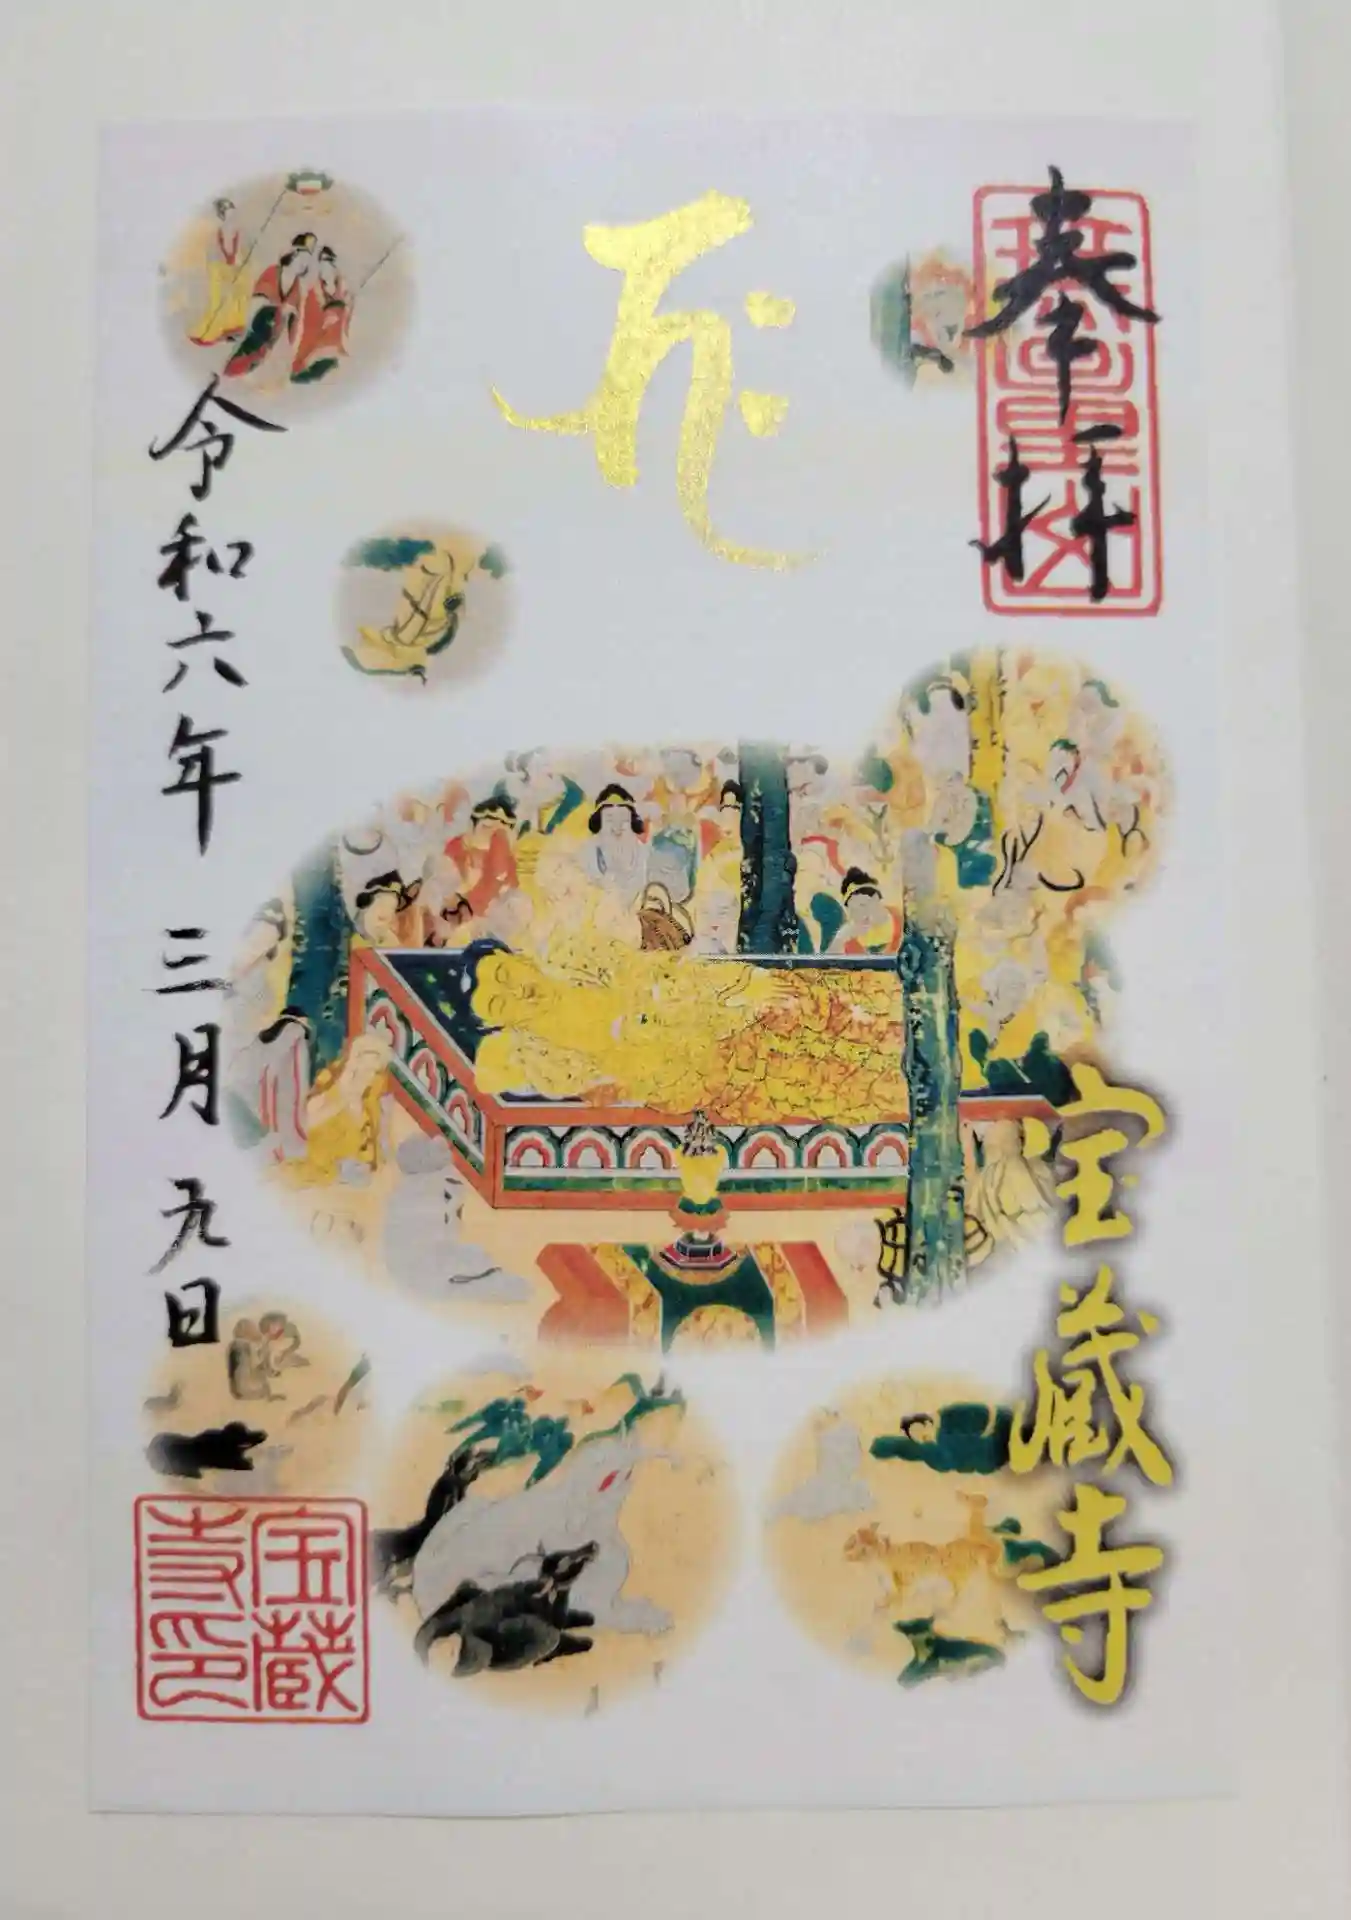 奉拝
宝蔵寺
𑖥𑖾
令和六年 三月 九日
宝蔵
寺印